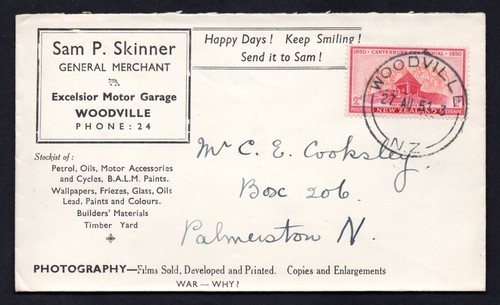 Sam P. Skinner
GENERAL MERCHANT
Excelsior Motor Garage
WOODVILLE
PHONE: 24
Happy Days! Keep Smiling!
Send it to Sam!
1850 CANTERBURY CENTENNIAL 1950
2d
NEW ZEALAND
WOODVILLE
27 AU 51
N.Z.
Stockist of:
Petrol, Oils, Motor Accessories
and Cycles, B.A.L.M. Paints.
Wallpapers, Friezes, Glass, Oils
Lead, Paints and Colours.
Builders' Materials
Timber Yard
Mr C. E. Cooksley
Box 206.
Palmerston N.
PHOTOGRAPHY—Films Sold, Developed and Printed. Copies and Enlargements
WAR — WHY?